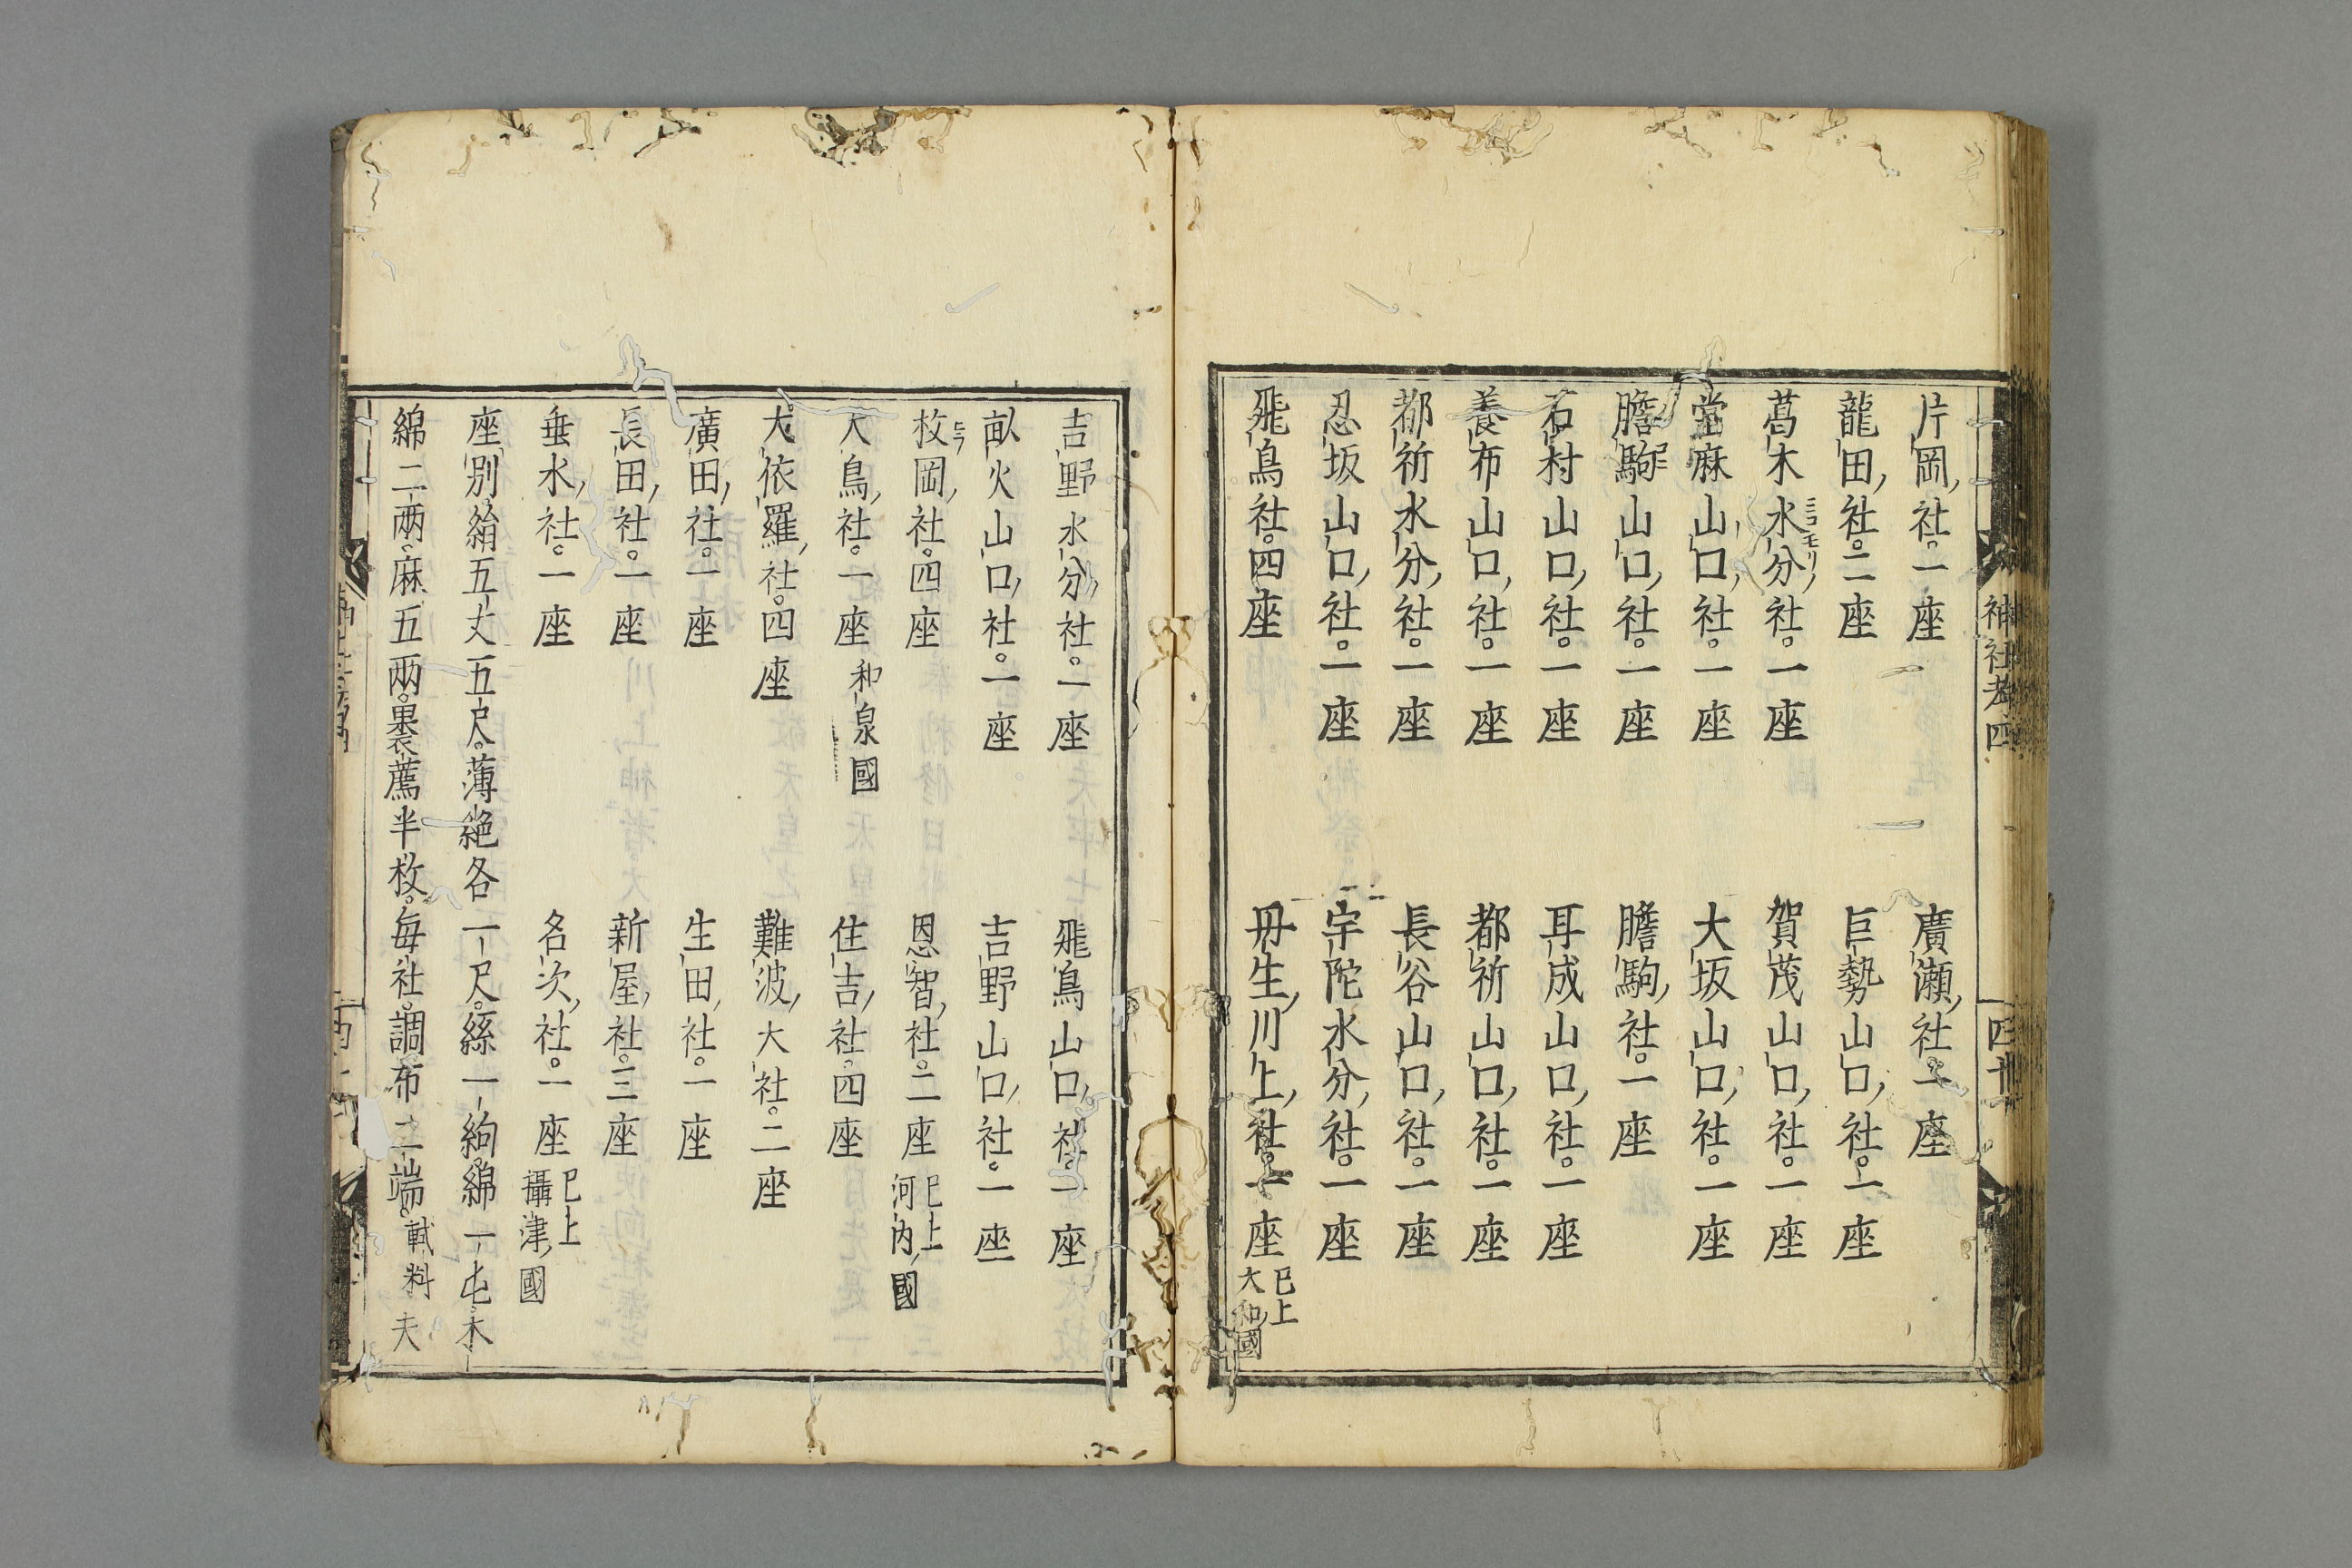 神社考四
四十
片岡社。一座　廣瀬社。一座
龍田社。二座　巨勢山口社。一座
葛木水分社。一座　賀茂山口社。一座
ミコモリ
當麻山口社。一座　大坂山口社。一座
膽駒山口社。一座　膽駒社。一座
石村山口社。一座　耳成山口社。一座
養布山口社。一座　都祈山口社。一座
都祈水分社。一座　長谷山口社。一座
忍坂山口社。一座　宇陀水分社。一座
飛鳥社。四座　丹生川上社。一座 已上大和國
吉野水分社。一座　飛鳥山口社。一座
畝火山口社。一座　吉野山口社。一座
枚岡社。四座　恩智社。二座 已上河内國
大鳥社。一座 和泉國　住吉社。四座
大依羅社。四座　難波大社。二座
廣田社。一座　生田社。一座
長田社。一座　新屋社。三座
垂水社。一座　名次社。一座 已上攝津國
座別絹五丈五尺。薄絁各一尺。絲一絇。綿一屯。木
綿二兩。麻五兩。裹薦半枚。毎社。調布二端。軾料 夫